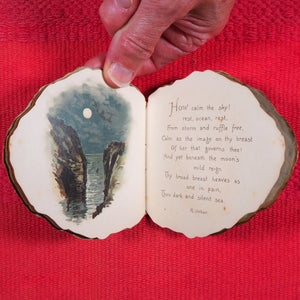 How calm the sky!
rest, ocean, rest,
From storm and ruffle free,
Calm as the image on thy breast
Of her that governs thee!
And yet beneath the moon's
mild reign
Thy broad breast heaves as
one in pain,
Thou dark and silent sea.